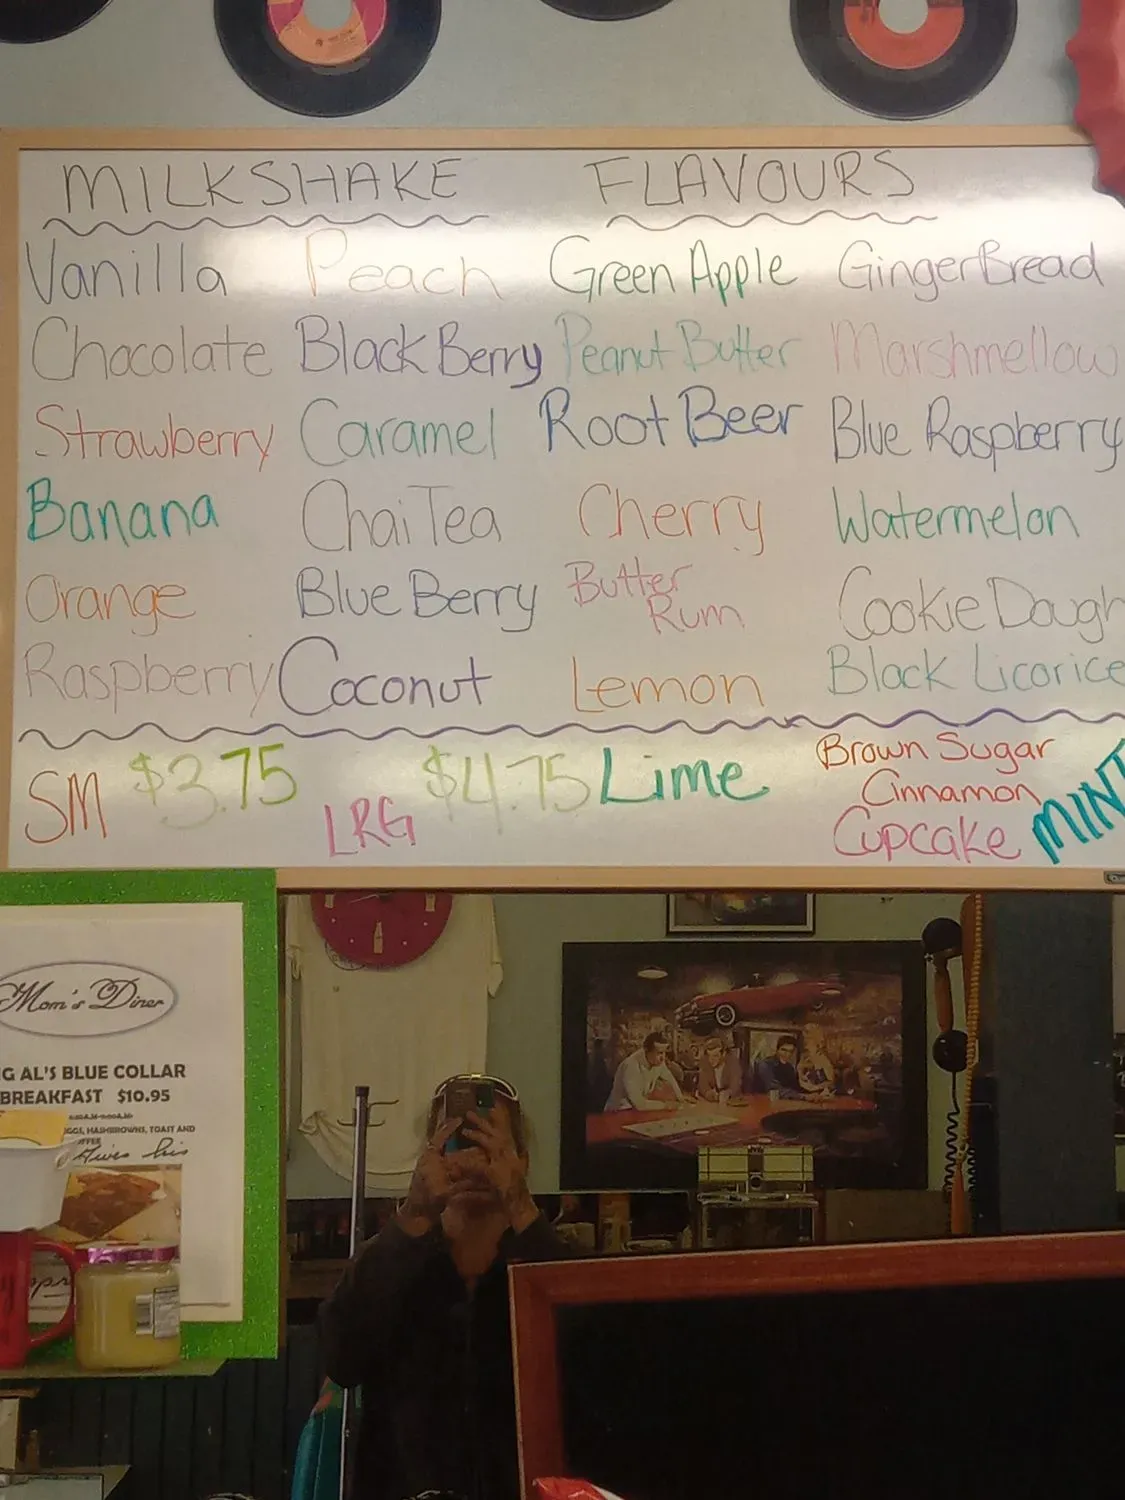 MILKSHAKE FLAVOURS
Vanilla Peach Green Apple GingerBread
Chocolate BlackBerry Peanut Butter Marshmellow
Strawberry Caramel Root Beer Blue Raspberry
Banana Chai Tea Cherry Watermelon
Orange BlueBerry Butter Rum Cookie Dough
Raspberry Coconut Lemon Black Licorice
SM $3.75 LRG $4.75 Lime Brown Sugar
Cinnamon
Cupcake MINT
Mom's Diner
G AL'S BLUE COLLAR
BREAKFAST $10.95
GGS, HASHBROWNS, TOAST AND